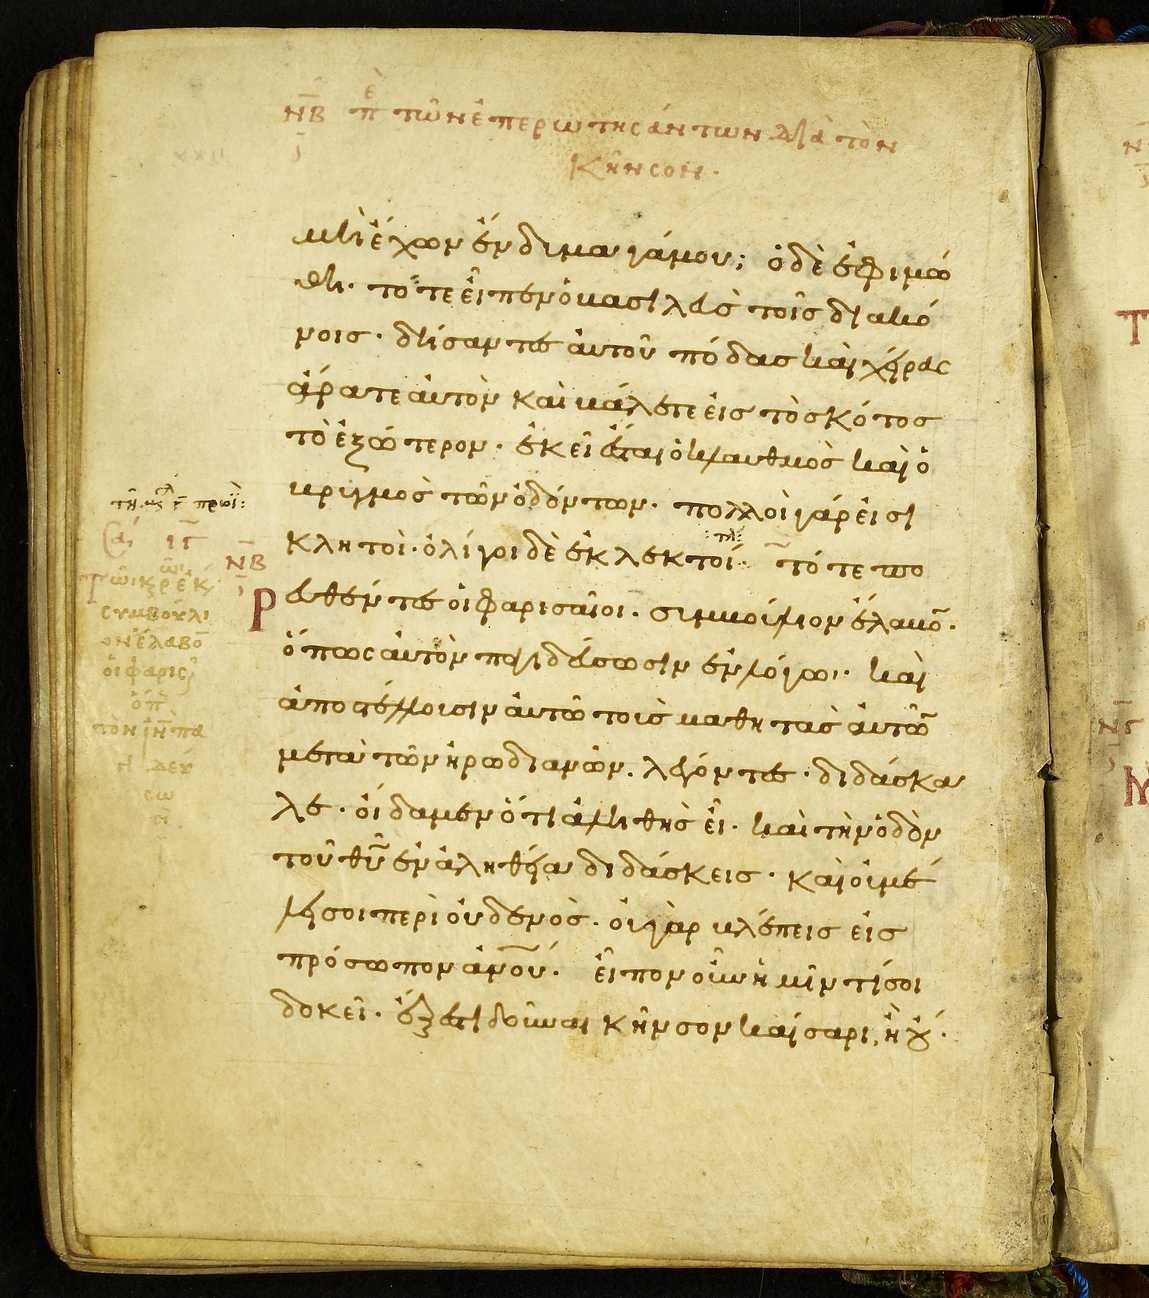 ΝΒ πε τῶν ἐπερωτησάντων διὰ τὸν
κῆνσον·
μὴ ἔχων ἔνδυμα γάμου; ὁ δὲ ἐφιμώ
θη· τότε εἶπεν ὁ βασιλεὺς τοῖς διακό
νοις· δήσαντες αὐτοῦ πόδας καὶ χεῖρας
ἄρατε αὐτὸν καὶ βάλετε εἰς τὸ σκότος
τὸ ἐξώτερον· ἐκεῖ ἔσται ὁ κλαυθμὸς καὶ ὁ
βρυγμὸς τῶν ὀδόντων· πολλοὶ γάρ εἰσι
κλητοὶ· ὀλίγοι δὲ ἐκλεκτοί· τότε πο
ΝΒ
ρευθέντες οἱ φαρισαῖοι· συμβούλιον ἔλαβον·
ὅπως αὐτὸν παγιδεύσωσιν ἐν λόγω· καὶ
ἀποστέλλουσιν αὐτῶ τοὺς μαθητὰς αὐτῶν
μετὰ τῶν ἡρωδιανῶν. λέγοντες· διδάσκα
λε· οἴδαμεν ὅτι ἀληθὴς εἶ· καὶ τὴν ὁδὸν
τοῦ θυ ἐν ἀληθεία διδάσκεις· καὶ οὐ μέ
λει σοι περὶ οὐδενὸς· οὐ γὰρ βλέπεις εἰς
πρόσωπον ανου· εἶπον οὖν ἡμῖν τί σοι
δοκεῖ· ἔξεστι δοῦναι κῆνσον καίσαρι, ἢ οὔ·
συμβούλι
ον ἔλαβον
οἱ φαρισ
ὅπ
τὸν ιν πα